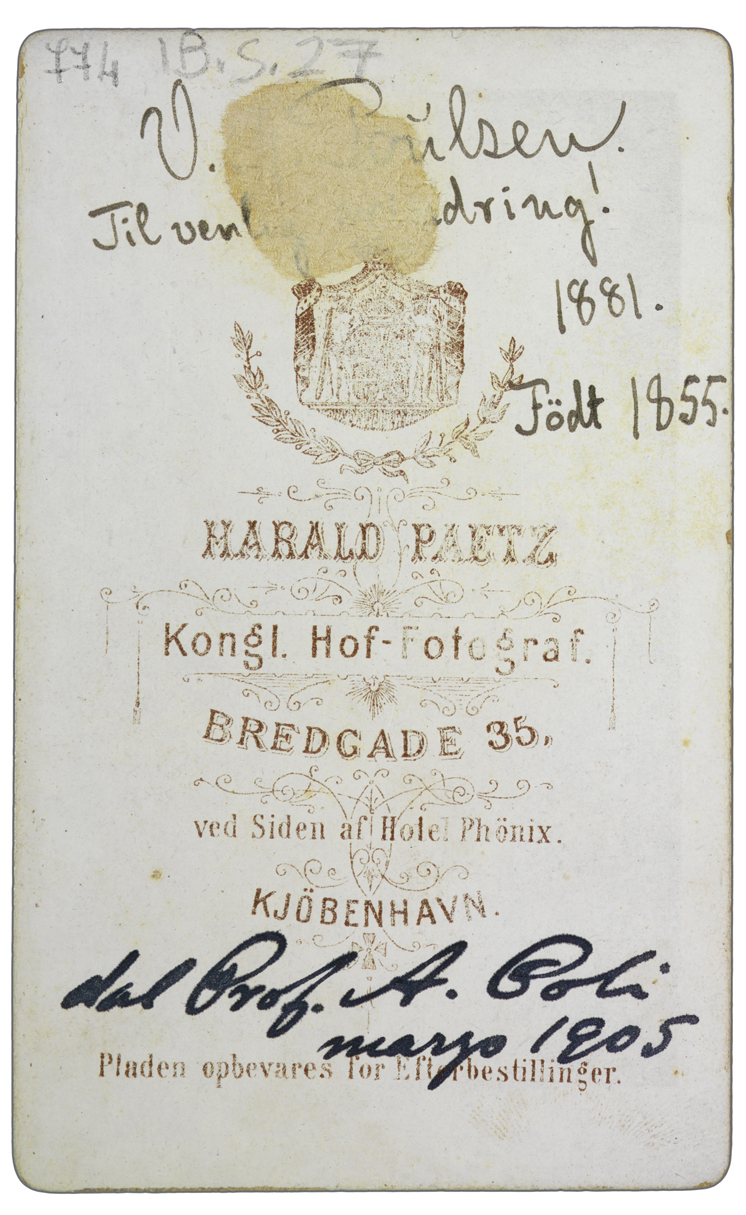 774 IB.S.27
V. Poulsen.
Til
1881.
Födt 1855.
HARALD PAETZ
Kongl. Hof-Fotograf.
BREDGADE 35.
ved Siden af Hotel Phönix.
KJÖBENHAVN.
dal Prof. A. Poli
marzo 1905
Pladen opbevares for Efterbestillinger.